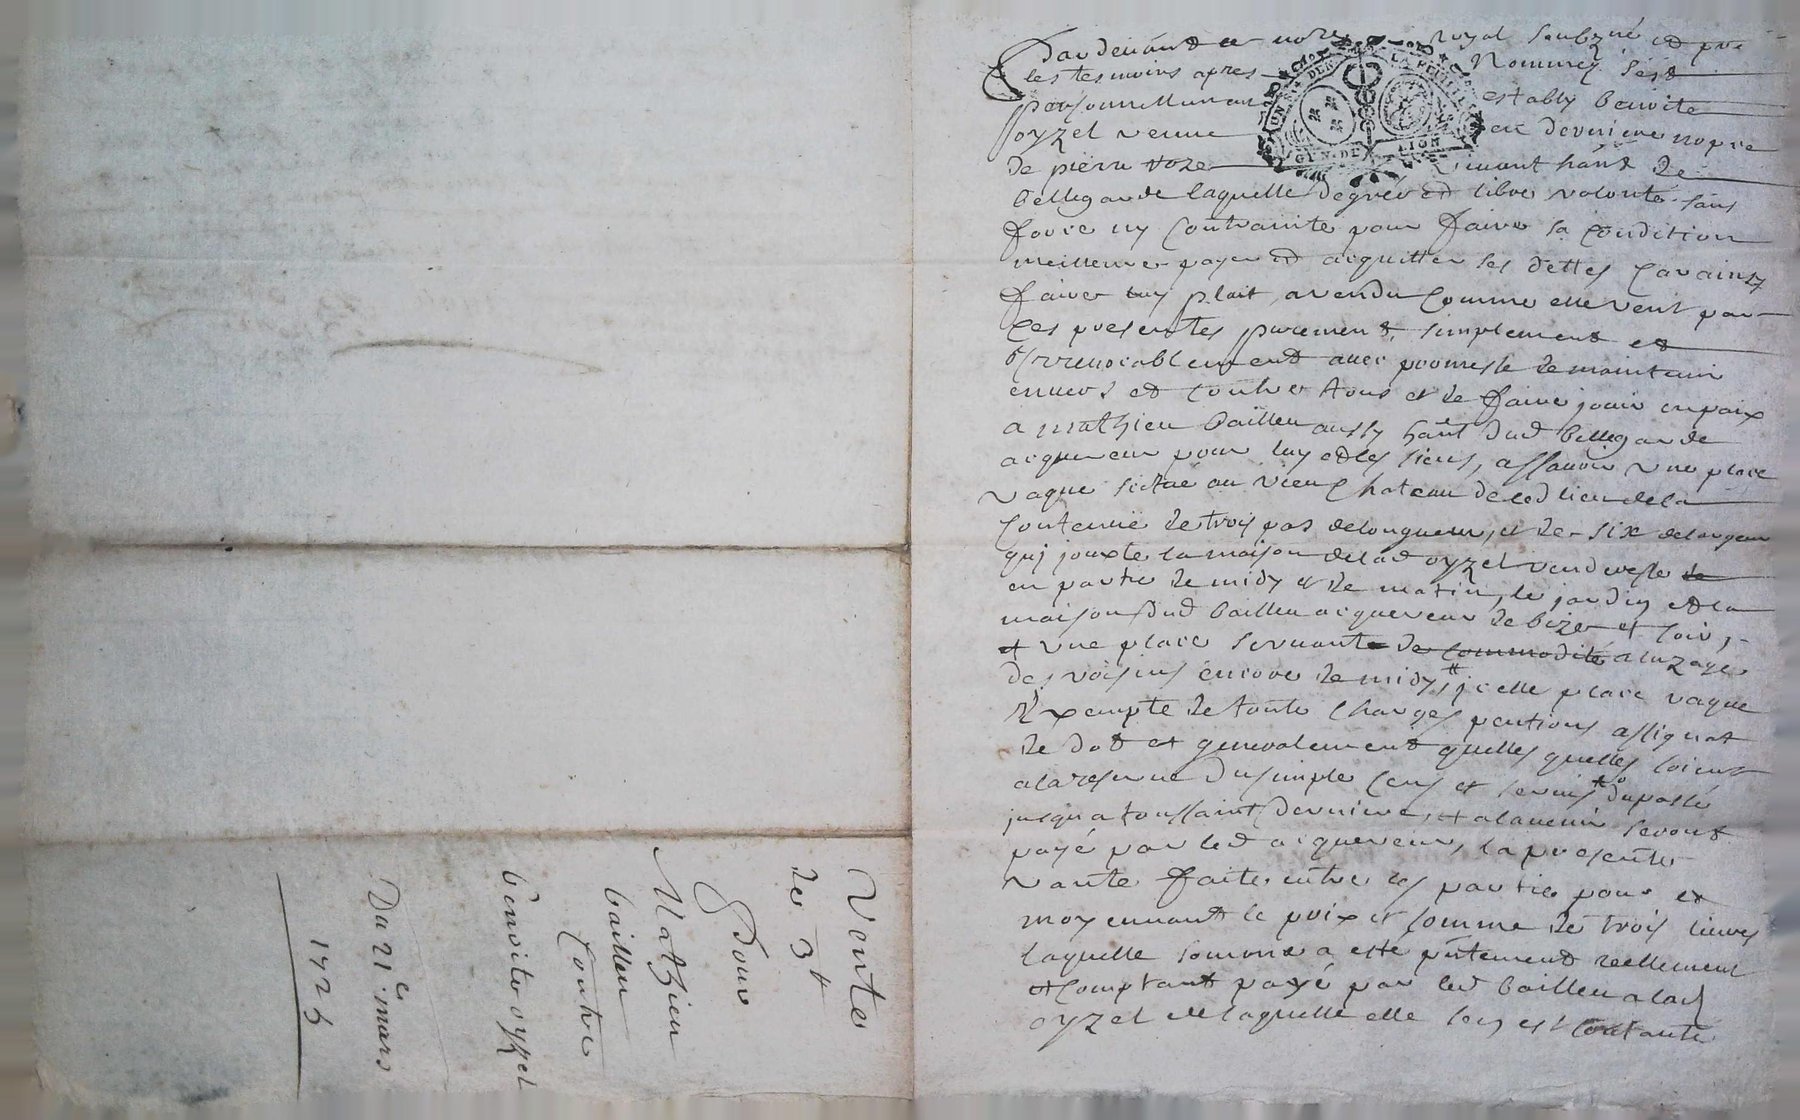 Vente
de 3#
Pour
Mathieu
bailleu
Contre
benoite oyzel
Du 21e mars
1725
Pardevant le notre royal soubzné et pnt
les tesmoins apres nommez s'est
personnellement establÿ benoite
oyzel veuve en derniere nopce
de pierre voze vivant hant de
bellegarde laquelle de gré et libre volonté sans
force ny contrainte pour faire sa condition
meilleure payer et acquitter ses dettes car ainsy
faire luy plait, a vendu comme elle vent par
ces presentes purement simplement et
irrevocablement avec promesse de maintenir
envers et contre tous et de faire jouir en paix
a mathieu bailleu aussy hant dud bellegarde
acquereur pour luy et les siens, assavoir une place
vague scitué au vieux chateau de ced lieu de la
contenue de trois pas de longueur, et de six de largeur
qui jouxte la maison de lad oyzel venderesse de
en partie de midy et de matin, le jardin et la
maison dud bailleu acquereur de bize et soir,
et une place servante de commodite a l'uzage
des voisins encore de midy, # icelle place vague
exempte de toute charges pentions assignat
de dot et generalement quelles quelles soient
a la reserve du simple cens et servis # du passé
jusqu a toussaint derniere, et a l'avenir seront
payé par led acquereur, la presente
vante faite entre les partie pour et
moyennant le prix et somme de trois livres
laquelle somme a esté pntement reellement
et comptant payé par led bailleu a lad
oyzel de laquelle elle s'en est contante
GEN. DE LION